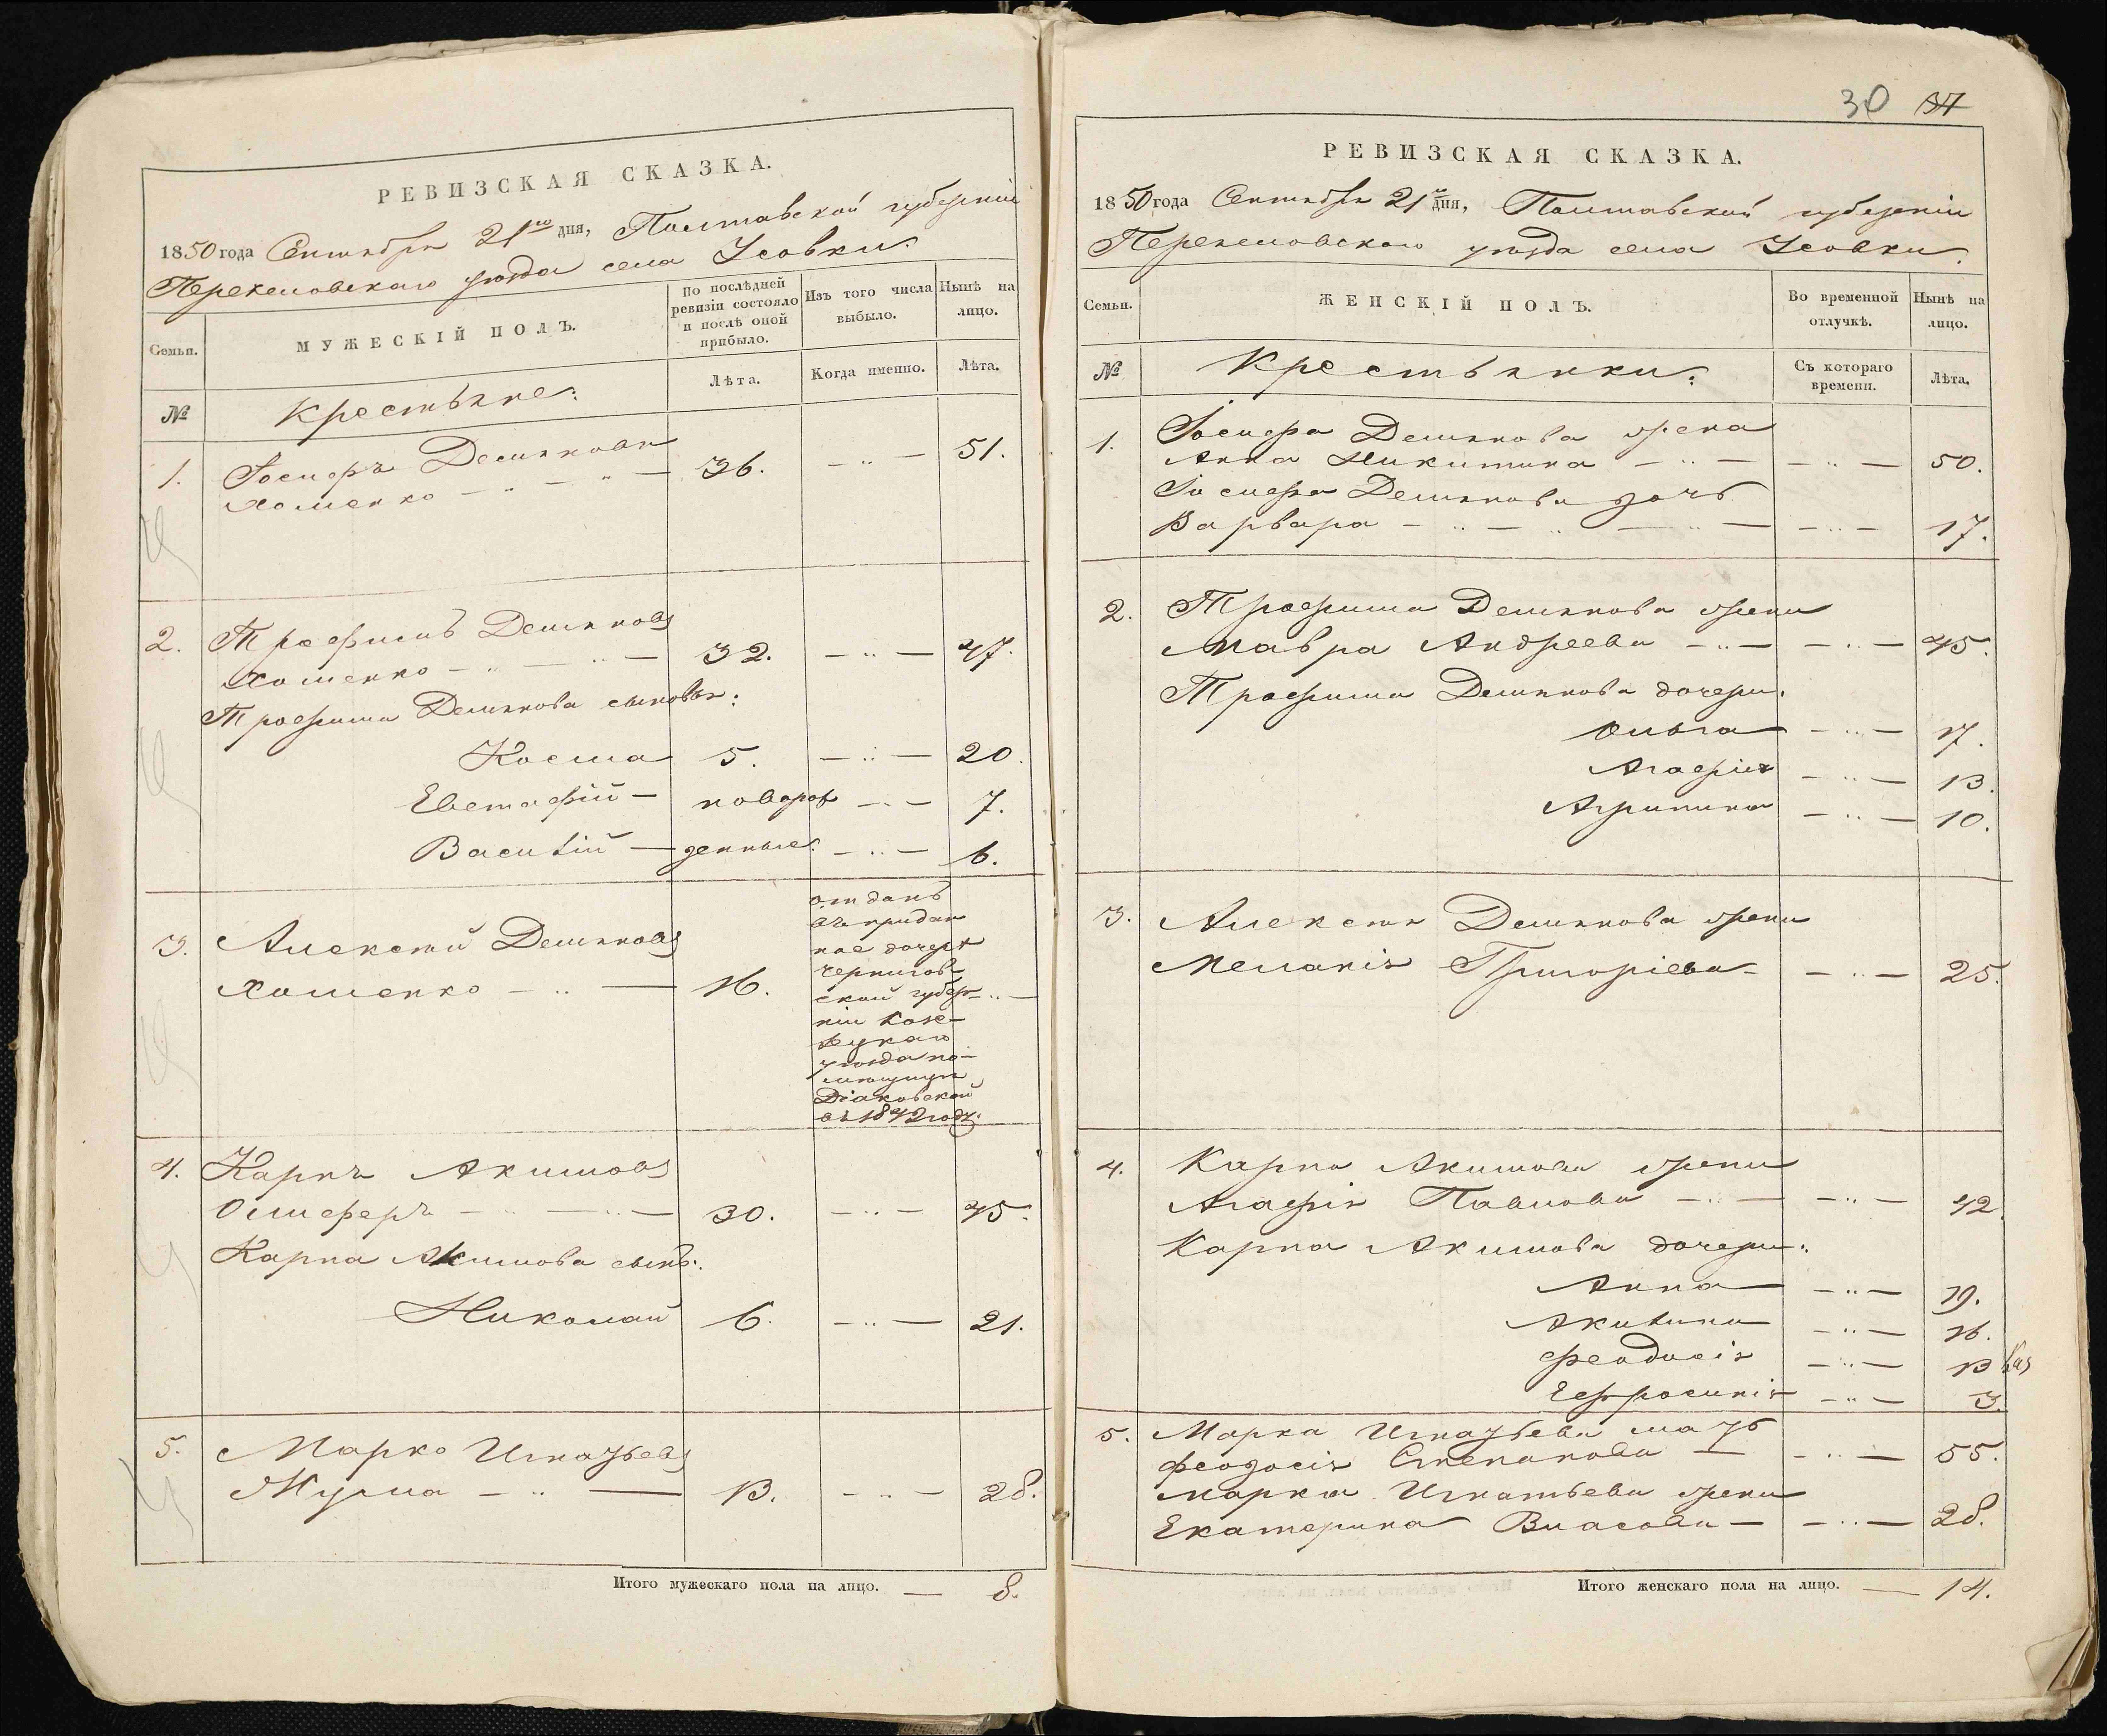 РЕВИЗСКАЯ СКАЗКА.
1850 года Сентября 21го дня, Полтавской губерніи
Переяславскаго уѣзда села Усовки.
Семьи.
МУЖЕСКІЙ ПОЛЪ.
По послѣдней
ревизіи состояло
и послѣ оной
прибыло.
Изъ того числа
выбыло.
Нынѣ на
лицо.
№
Крестьяне:
Лѣта.
Когда именно.
Лѣта.
1. Іосифъ Демьяновъ
Хоменко — „ — „ — 36. — „ — 51.
2. Трофимъ Демьяновъ
Хоменко — „ — „ — 32. — „ — 47.
Трофима Демьянова сыновья:
Косма 5. — „ — 20.
Евстафій — новорож — „ — 7.
Василій — денные. — „ — 6.
3. Алексѣй Демьяновъ
Хоменко — „ — 16. — „ —
отданъ
въ придан
ное дочери
Чернигов
ской губер
ніи Козе-
лецкаго
уѣзда по-
мѣщицы
Діаковской
въ 1842 году.
4. Карпъ Акимовъ
Олиферъ — „ — „ — 30. — „ — 45.
Карпа Акимова сынъ:
Николай 6. — „ — 21.
5. Марко Игнатьевъ
Жула — „ — 13. — „ — 28.
Итого мужескаго пола на лицо. — 8.
30 37
РЕВИЗСКАЯ СКАЗКА.
1850 года Сентября 21го дня, Полтавской губерніи
Переяславскаго уѣзда села Усовки.
Семьи.
ЖЕНСКІЙ ПОЛЪ.
Во временной
отлучкѣ.
Нынѣ на
лицо.
№
Крестьянки:
Съ котораго
времени.
Лѣта.
1. Іосифа Демьянова жена
Анна Никитина — „ — — „ — 50.
Іосифа Демьянова дочь
Варвара — „ — „ — „ — — „ — 17.
2. Трофима Демьянова жена
Мавра Андреева — „ — — „ — 45.
Трофима Демьянова дочери:
Ольга — „ — 17.
Агафія — „ — 13.
Агрипина — „ — 10.
3. Алексѣя Демьянова жена
Меланія Григоріева — — „ — 25.
4. Карпа Акимова жена
Агафія Павлова — „ — — „ — 42.
Карпа Акимова дочери:
Анна — „ — 19.
Акилина — „ — 16.
Феодосія — „ — 13
Ефросинія — „ — 3.
5. Марка Игнатьева мать
Феодосія Степанова — — „ — 55.
Марка Игнатьева жена
Екатерина Власова — — „ — 28.
Итого женскаго пола на лицо. — 14.